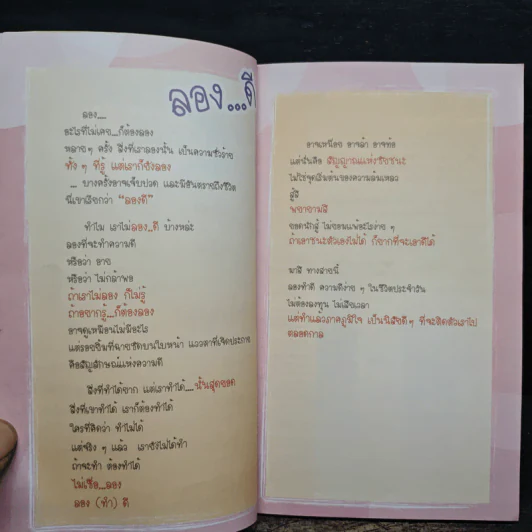 ลอง...ดี
ลอง....
อะไรที่ไม่เคย...ก็ต้องลอง
หลายๆ ครั้ง สิ่งที่เราลองนั้น เป็นความชั่วร้าย
ทั้ง ๆ ที่รู้ แต่เราก็ยังลอง
... บางครั้งอาจเจ็บปวด และมีอันตรายถึงชีวิต
นี่เขาเรียกว่า "ลองดี"
ทำไม เราไม่ลอง..ดี บ้างหล่ะ
ลองที่จะทำความดี
หรือว่า อาย
หรือว่า ไม่กล้าพอ
ถ้าเราไม่ลอง ก็ไม่รู้
ถ้าอยากรู้...ก็ต้องลอง
อาจดูเหมือนไม่มีอะไร
แต่รอยยิ้มที่ฉายชัดบนใบหน้า แววตาที่เจิดประกาย
คือสัญลักษณ์แห่งความดี
สิ่งที่ทำได้ยาก แต่เราทำได้....นั้นสุดยอด
สิ่งที่เขาทำได้ เราก็ต้องทำได้
ใครที่คิดว่า ทำไม่ได้
แต่จริง ๆ แล้ว เรายังไม่ได้ทำ
ถ้าจะทำ ต้องทำได้
ไม่เชื่อ...ลอง
ลอง (ทำ) ดี
อาจเหนื่อย อาจล้า อาจท้อ
แต่นั่นคือ สัญญาณแห่งชัยชนะ
ไม่ใช่จุดเริ่มต้นของความล้มเหลว
สู้สิ
พยายามสิ
ยอดนักสู้ ไม่ยอมแพ้อะไรง่าย ๆ
ถ้าเอาชนะตัวเองไม่ได้ ก็ยากที่จะเอาดีได้
มาสิ ทางสายนี้
ลองทำดี ความดีง่าย ๆ ในชีวิตประจำวัน
ไม่ต้องลงทุน ไม่เสียเวลา
แต่ทำแล้วภาคภูมิใจ เป็นนิสัยดีๆ ที่จะติดตัวเราไป
ตลอดกาล